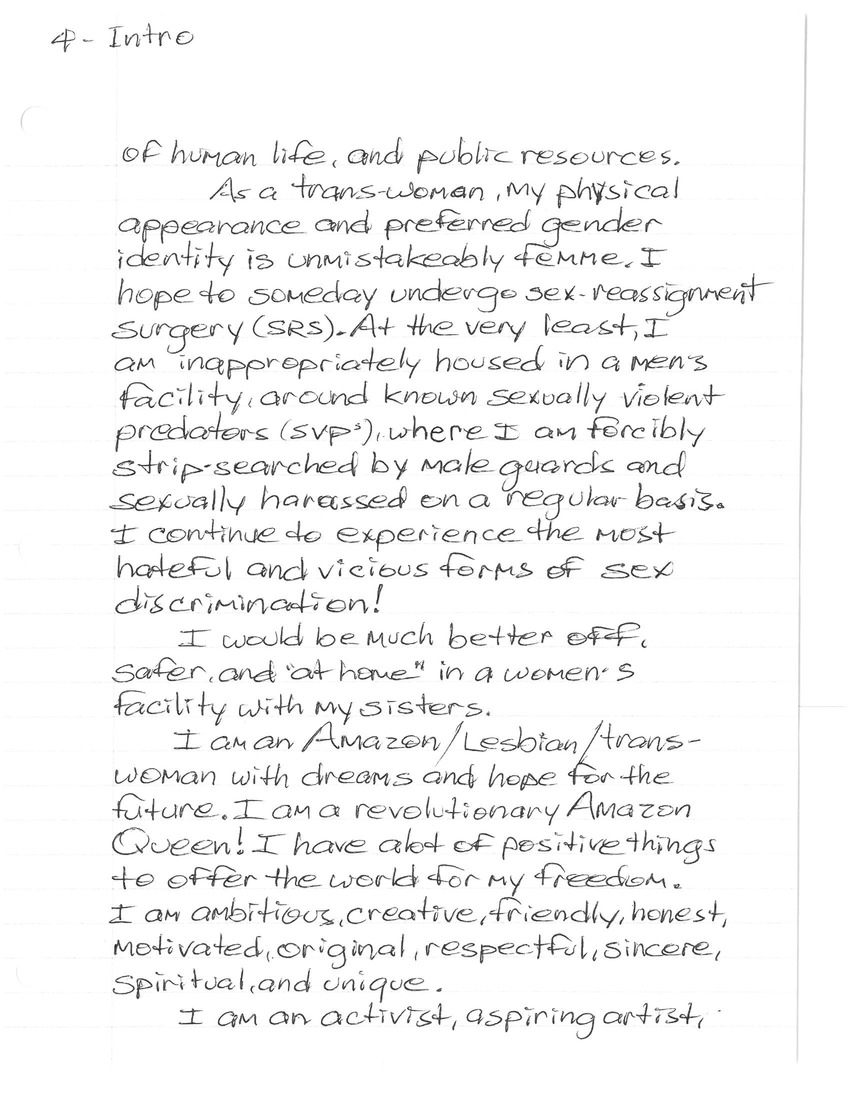 4 - Intro
of human life, and public resources.
As a trans-woman, my physical
appearance and preferred gender
identity is unmistakeably femme. I
hope to someday undergo sex-reassignment
surgery (SRS). At the very least, I
am inappropriately housed in a men's
facility, around known sexually violent
predators (SVPs), where I am forcibly
strip-searched by male guards and
sexually harassed on a regular basis.
I continue to experience the most
hateful and vicious forms of sex
discrimination!
I would be much better off,
safer, and "at home" in a women's
facility with my sisters.
I am an Amazon/Lesbian/trans-
woman with dreams and hope for the
future. I am a revolutionary Amazon
Queen! I have alot of positive things
to offer the world for my freedom.
I am ambitious, creative, friendly, honest,
motivated, original, respectful, sincere,
spiritual, and unique.
I am an activist, aspiring artist,